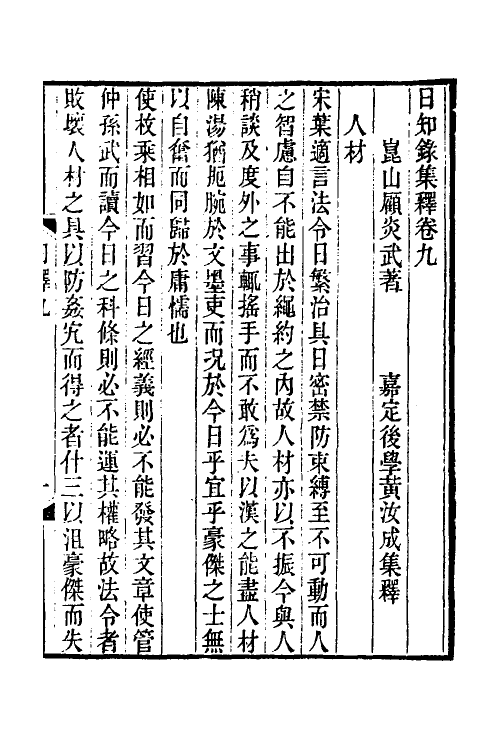 日知錄集釋卷九
崑山顧炎武著　嘉定後學黃汝成集釋
人材
宋葉適言法令日繁治具日密禁防束縛至不可動而人
之智慮自不能出於繩約之內故人材亦以不振今與人
稍談及度外之事輒搖手而不敢爲夫以漢之能盡人材
陳湯猶扼腕於文墨吏而况於今日乎宜乎豪傑之士無
以自奮而同歸於庸懦也
使枚乘相如而習今日之經義則必不能發其文章使管
仲孫武而讀今日之科條則必不能運其權略故法令者
敗壞人材之具以防姦宄而得之者什三以沮豪傑而失
釋九